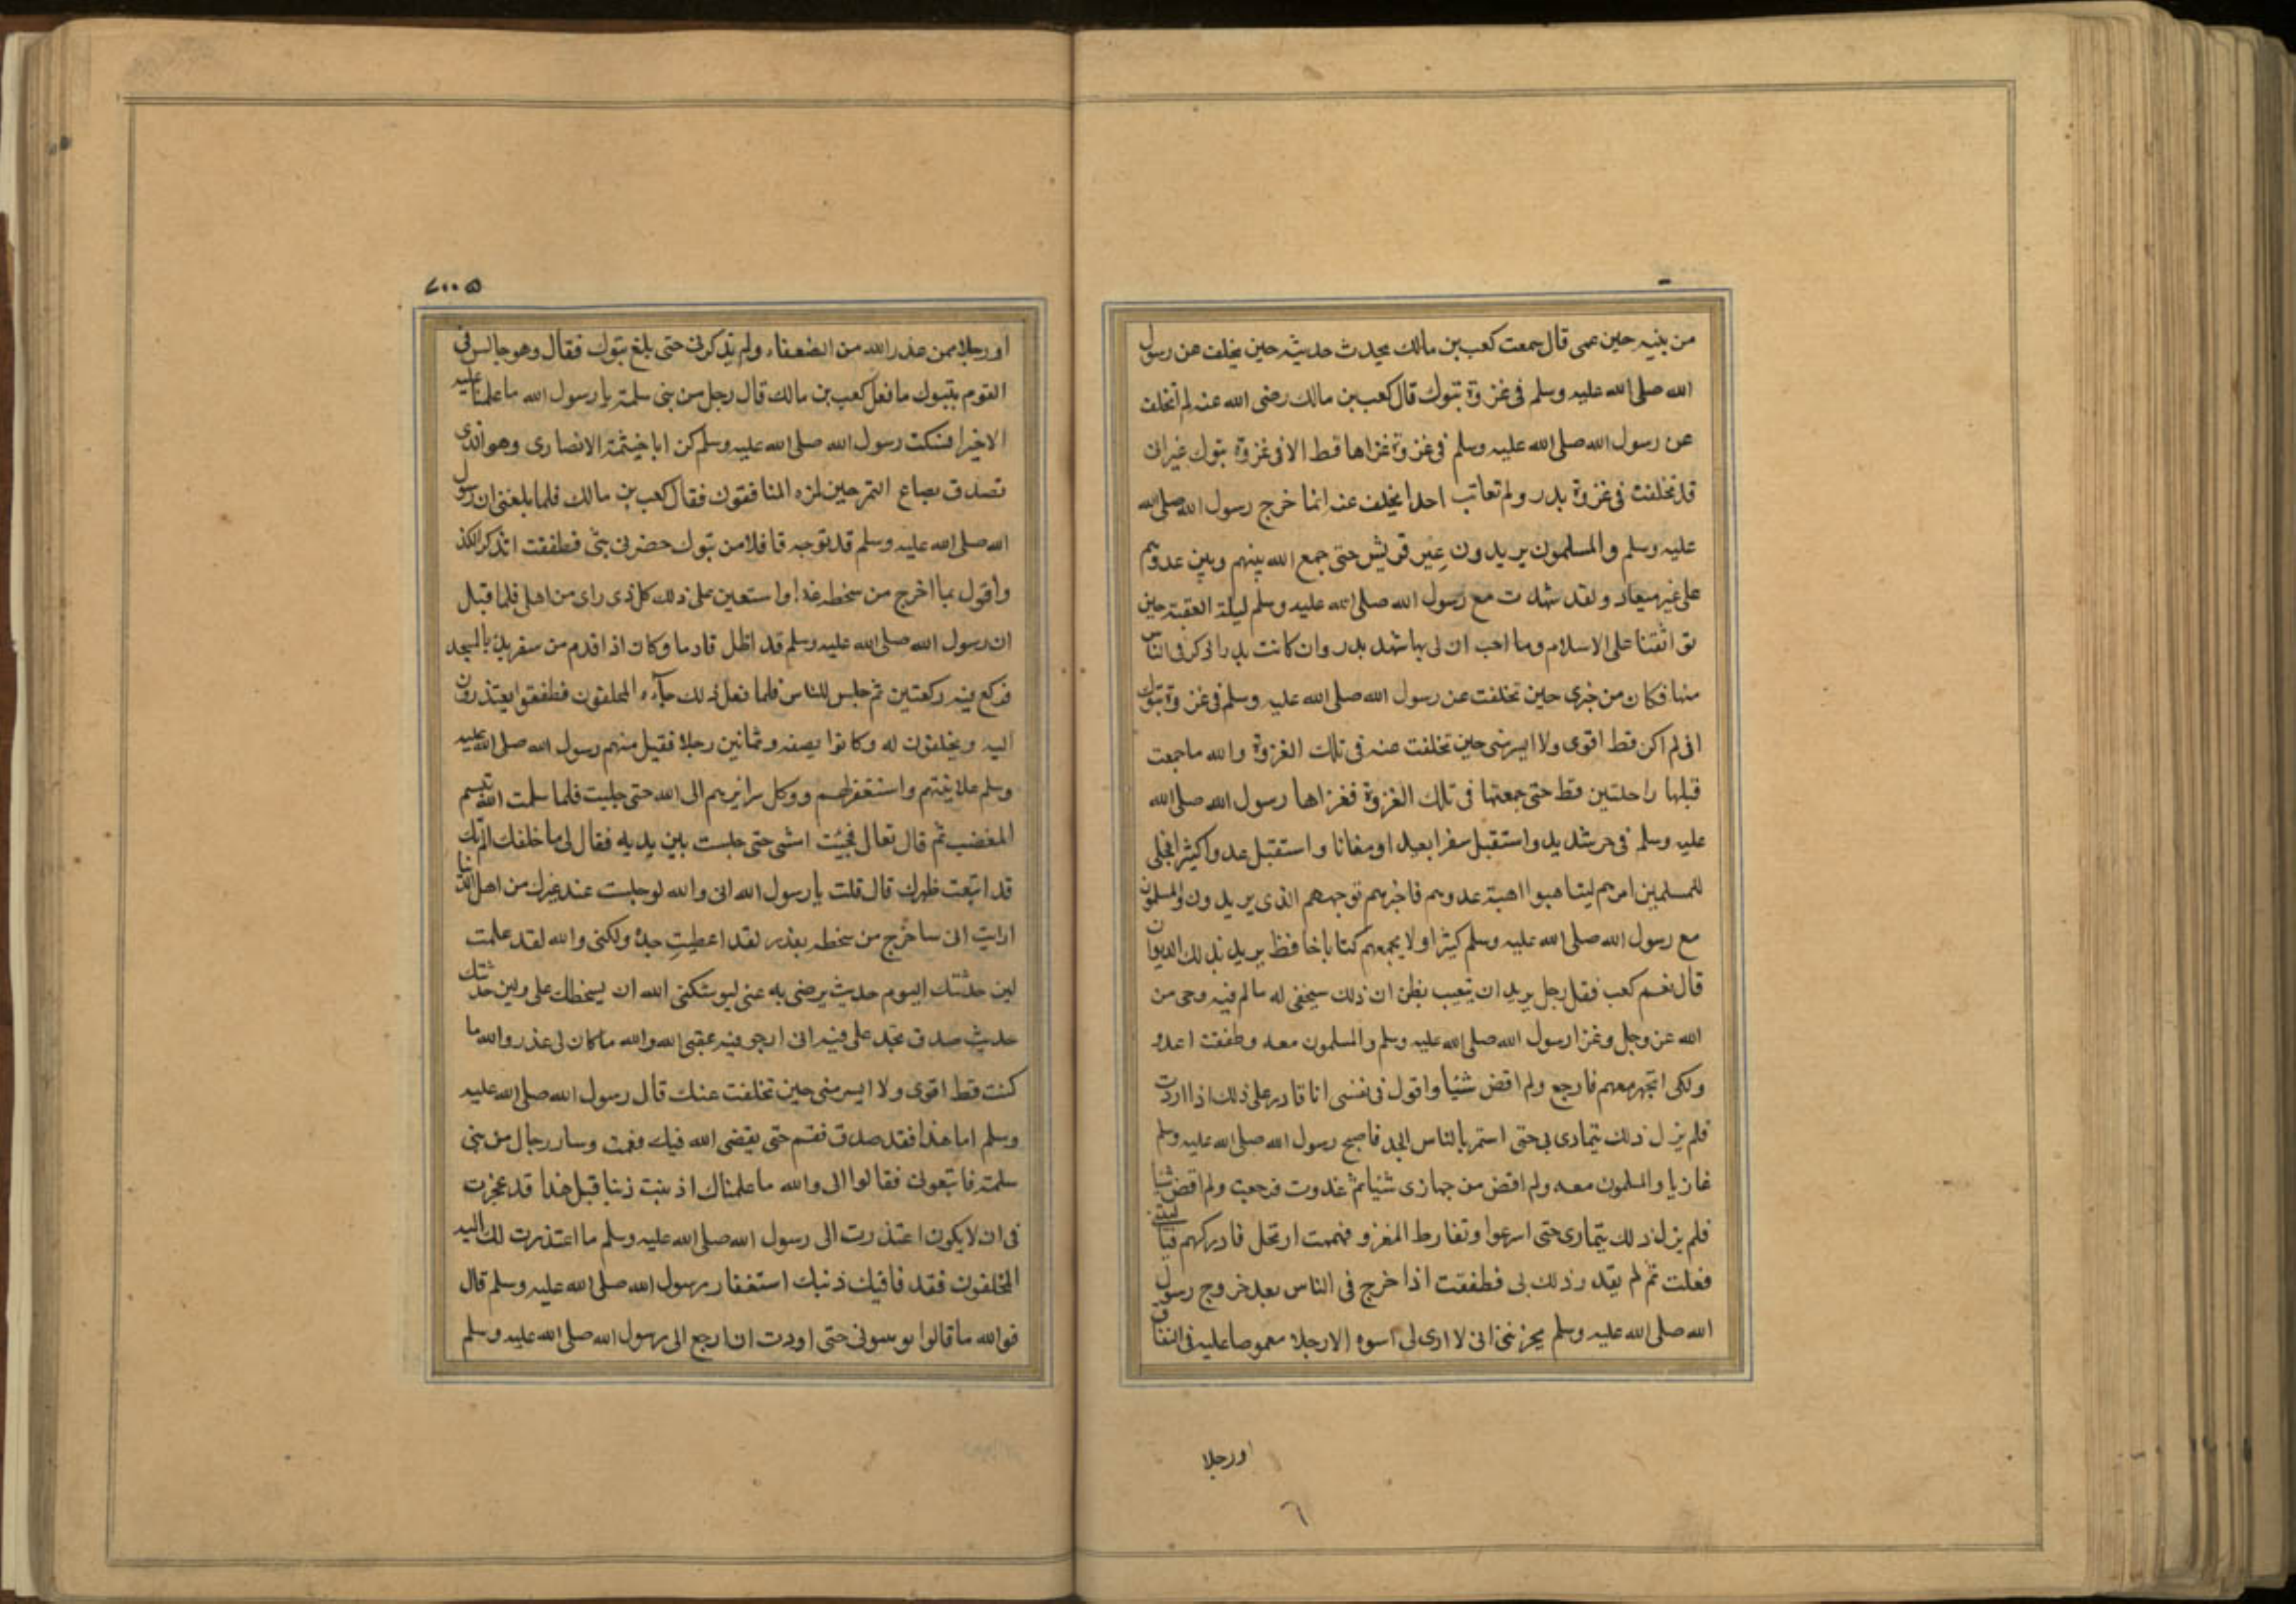 من بنيه حين عمى قال سمعت كعب بن مالك يحدث حديثه حين تخلف عن رسول
الله صلى الله عليه وسلم فى غزوة تبوك قال كعب بن مالك رضى الله عنه لم اتخلف
عن رسول الله صلى الله عليه وسلم فى غزوة غزاها قط الا فى غزوة تبوك غير انى
قد تخلفت فى غزوة بدر ولم تعاتب احدا تخلف عنه انما خرج رسول الله صلى الله
عليه وسلم والمسلمون يريدون عير قريش حتى جمع الله بينهم وبين عدوهم
على غير ميعاد ولقد شهدت مع رسول الله صلى الله عليه وسلم ليلة العقبة حين
تواثقنا على الاسلام وما احب ان لى بها شهد بدر وان كانت بدر اذكر فى الناس
منها فكان من خبرى حين تخلفت عن رسول الله صلى الله عليه وسلم فى غزوة تبوك
انى لم اكن قط اقوى ولا ايسر منى حين تخلفت عنه فى تلك الغزوة والله ما جمعت
قبلها راحلتين قط حتى جمعتها فى تلك الغزوة فغزاها رسول الله صلى الله
عليه وسلم فى حر شديد واستقبل سفرا بعيدا ومفازا واستقبل عدوا كثيرا فجلى
للمسلمين امرهم ليتاهبوا اهبة عدوهم فاخبرهم توجههم الذى يريدون والمسلمون
مع رسول الله صلى الله عليه وسلم كثيرا ولا يجمعهم كتابا حافظ يريد بذلك الديوان
قال نعم كعب فقل رجل يريد ان يتغيب يظن ان ذلك سيخفى له مالم فيه وحى من
الله عز وجل وغزا رسول الله صلى الله عليه وسلم والمسلمون معه وطفقت اغدو
ولكى اتجهز معهم فارجع ولم اقض شئيا واقول فى نفسى انا قادر على ذلك اذا اردت
فلم يزل ذلك يتمادى بى حتى استمر بالناس الجد فاصبح رسول الله صلى الله عليه وسلم
غازيا والمسلمون معه ولم اقض من جهازى شئيا ثم غدوت فرجعت ولم اقض شئيا
فلم يزل ذلك يتمارى حتى اسرعوا وتفارط المغزو فهممت ارتحل فادركهم فيا ليتنى
فعلت ثم لم يقدر ذلك لى فطفقت اذا خرج فى الناس بعد خروج رسول
الله صلى الله عليه وسلم يحزننى انى لا ارى لى اسوه الا رجلا مغموصا عليه فى النفاق
اورجلا
٦
او رجلا ممن عذر الله من الضعفاء ولم يذكرنى حتى بلغ تبوك فقال وهو جالس فى
القوم بتبوك ما فعل كعب بن مالك قال رجل من بنى سلمة يا رسول الله ما علمنا عليه
الا خيرا فسكت رسول الله صلى الله عليه وسلم كن ابا خيثمة الانصارى وهو الذى
تصدق بصاع التمر حين لمزه المنافقون فقال كعب بن مالك فلما بلغنى ان رسول
الله صلى الله عليه وسلم قد توجه قافلا من تبوك حضرنى بثى فطفقت اتذكر الكذ
واقول بما اخرج من سخطه غدا واستعين على ذلك كل ذى راى من اهلى فلما قبل
ان رسول الله صلى الله عليه وسلم قد اظل قادما وكان اذا قدم من سفر بدا بالمسجد
فركع فيه ركعتين ثم جلس للناس فلما فعل ذلك جآءه المخلفون فطفقوا يعتذرون
اليه ويحلفون له وكانوا بضعة وثمانين رجلا فقبل منهم رسول الله صلى الله عليه
وسلم علانيتهم واستغفر لهم ووكل سرائرهم الى الله حتى جليت فلما سلمت اللّه تبسم
المغضب ثم قال تعال فجيئت امشى حتى جلست بين يديه فقال لى ما خلفك الم تك
قد ابتعت ظهرك قال قلت يا رسول الله انى والله لو جلست عند غيرك من اهل الدنيا
ارايت انى ساخرج من سخطه بعذر لقد اعطيت جدلا ولكنى والله لقد علمت
لين حدثتك اليوم حديث يرضى به عنى ليوشكنى الله ان يسخطك على ولين حدثتك
حديث صدق تجد على فيه انى ارجو فيه عقبى الله والله ما كان لى عذر والله ما
كنت قط اقوى ولا ايسر منى حين تخلفت عنك قال رسول الله صلى الله عليه
وسلم اما هذا فقد صدق فقم حتى يقضى الله فيك فقمت وسار رجال من بنى
سلمة فاتبعونى فقالوا لى والله ما علمناك اذنبت ذنبا قبل هذا قد عجزت
فى ان لا يكون اعتذرت الى رسول الله صلى الله عليه وسلم ما اعتذرت لك اليه
المخلفون فقد فاقيك ذنبك استغفار رسول الله صلى الله عليه وسلم قال
فوالله ما قالوا يوسونى حتى اودت ان ارجع الى رسول الله صلى الله عليه وسلم